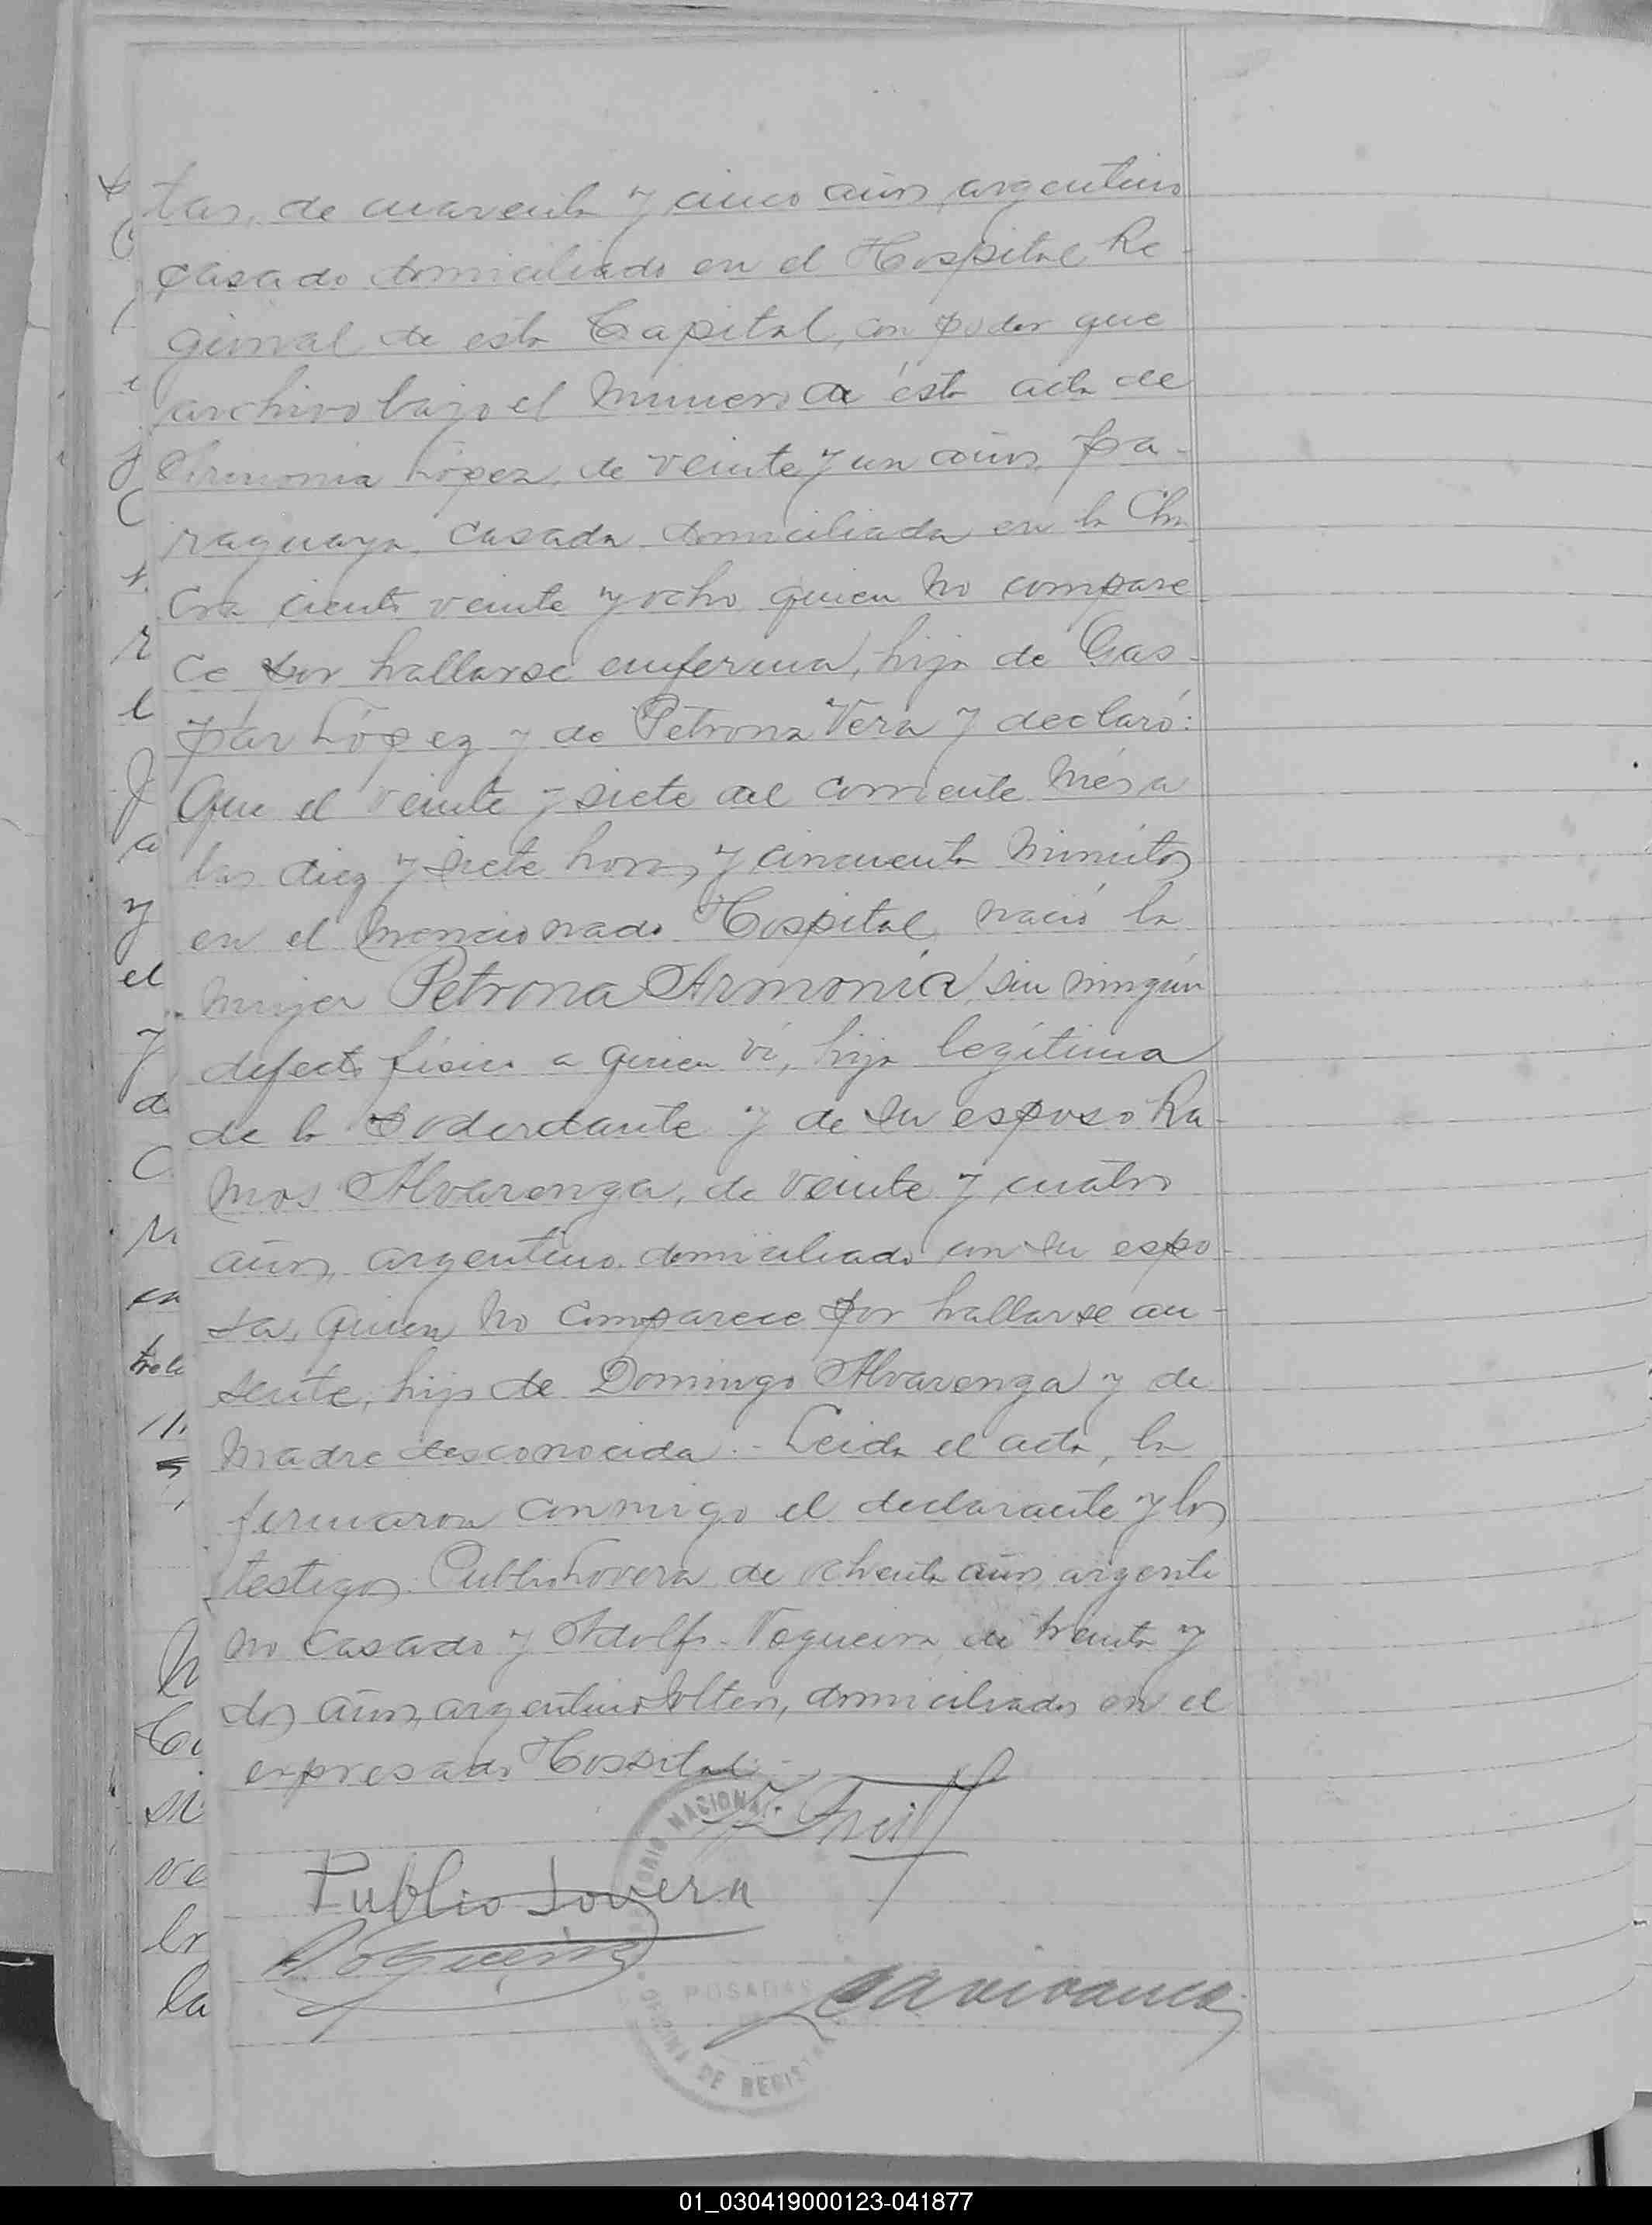 tas, de cuarenta y cinco años, argentino
casado domiciliado en el Hospital Re-
gional de esta Capital, con poder que
archivo bajo el número de ésta acta de
López, de veinte y un años, pa-
raguaya, casada domiciliada en la Cha
cra ciento veinte y ocho quien no compare
ce por hallarse enferma, hija de Gas-
par López y de Petrona Vera y declaró:
Que el veinte y siete del corriente mes a
las diez y siete horas y cincuenta minutos
en el mencionado Hospital nació la
mujer Petrona Armonía, sin ningún
defecto físico a quien ví, hija legítima
de la poderdante y de su esposo Ra-
mos Alvarenga, de veinte y cuatro
años, argentino domiciliado con su espo-
sa, quien no comparece por hallarse au-
sente, hijo de Domingo Alvarenga y de
madre desconocida.- Leida el acta, la
firmaron conmigo el declarante y los
testigos Publio Lovera de ochenta años argenti
no casado y Adolfo Nogueira de treinta y
dos años, argentino soltero, domiciliados en el
expresado Hospital.-
Publio Lovera
Nogueira
NACIONAL
POSADAS
OFICINA DE REGIST
el
y
en
la
01_030419000123-041877